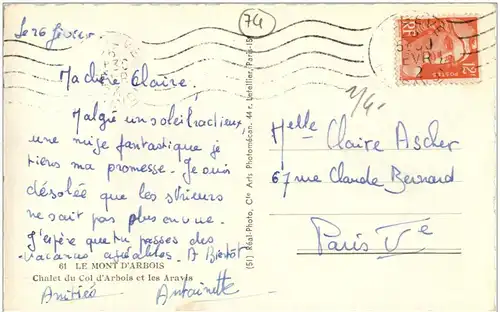 74
Le 26 février.
Ma chère Claire.
Malgré un soleil radieux,
une neige fantastique je
tiens ma promesse. Je suis
désolée que les skieurs
ne soit pas plus en vue.
J'espère que tu passes des
vacances agréables. A Bientot
61 LE MONT D'ARBOIS
Chalet du Col d'Arbois et les Aravis
Amitiés Antoinette
(51) Réal-Photo, Cie Arts Photomécan. 44 r. Letellier, Paris-15
12F
POSTES
Melle Claire Ascher
67 rue Claude Bernard
Paris Ve